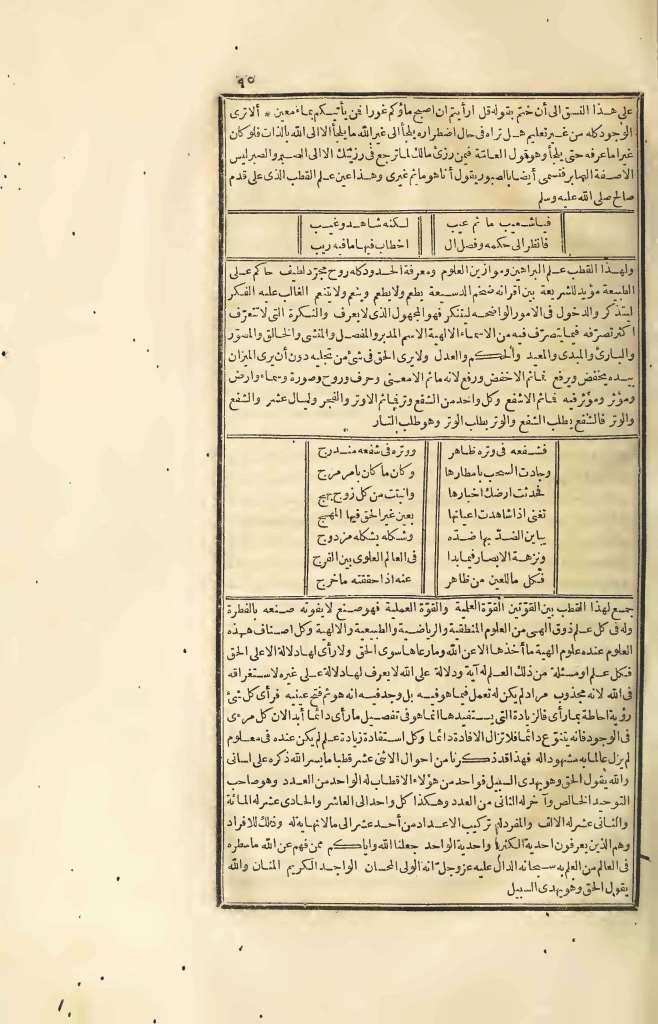 ٩٥
على هذا النسق الى أن ختم بقوله قل أرأيتم ان أصبح ماؤكم غورا فمن يأتيكم بماء معين * ألا ترى
الوجود كله من غير تعليم هل تراه فى حال اضطراره يلجأ الى غير الله ما يلجأ الا الى الله بالذات فلو كان
غيرا ما عرفه حتى يلجأ وهو قول العامة فيمن رزئ مالك لما ترجع فى رزيتك الا الى الصبر والصبر ليس
الا صفة الصابر فتسمى أيضا بالصبور يقول أنا هو ما ثم غيرى وهذا عين علم القطب الذى على قدم
صالح صلى الله عليه وسلم
فيا شعيب ما ثم عيب لكنه شاهد وغيب
فانظر الى حكمه وفصل ال اخطاب فيها ما فيه ريب
ولهذا القطب علم البراهين وموازين العلوم ومعرفة الحدود كله روح مجرد لطيف حاكم على
الطبيعة مؤيد للشريعة بين أقرانه ضخم الدسيعة يطم ولا يطعم وينعم ولا يتنعم الغالب عليه الفكر
ليتذكر والدخول فى الامور الواضحة ليتنكر فهو المجهول الذى لا يعرف والنكرة التى لا تتعرف
أكثر تصرفه فيما يتصرف فيه من الاسماء الالهية الاسم المدبر والمفصل والمنشى والخالق والمصور
والبارئ والمبدى والمعيد والحكم والعدل ولا يرى الحق فى شئ من تجليه دون أن يرى الميزان
بيده يخفض ويرفع فما ثم الا خفض ورفع لانه ما ثم الا معنى وحرف وروح وصورة وسماء وأرض
ومؤثر ومؤثر فيه فما ثم الا شفع وكل واحد من الشفع وتر فما ثم الا وتر والفجر وليال عشر والشفع
والوتر فالشفع يطلب الشفع والوتر يطلب الوتر وهو طلب الثار
فشفعه فى وتره ظاهر ووتره فى شفعه مندرج
وجادت السحب بأمطارها وكان ما كان بأمر مرج
فحدثت أرضك أخبارها وأنبتت من كل زوج بهيج
تغنى اذا شاهدت أعيانها بعين غير الحق فيها المهج
يباين الضد بها ضده وشكله بشكله مزدوج
ونزهة الابصار فيما بدا فى العالم العلوى بين الفرج
فكل ما للعين من ظاهر عنه اذا حققته ما خرج
جمع لهذا القطب بين القوتين القوة العلمية والقوة العملية فهو صنع لا يفوته صنعه بالفطرة
وله فى كل علم ذوق الهى من العلوم المنطقية والرياضية والطبيعية والالهية وكل أصناف هذه
العلوم عنده علوم الهية ما أخذها الا عن الله وما رآها سوى الحق ولا رأى لها دلالة الا على الحق
فكل علم أو مسئلة من ذلك العلم له آية ودلالة على الله لا يعرف لها دلالة على غيره لاستغراقه
فى الله لانه مجذوب مراد لم يكن له تعمل فيما هو فيه بل وجد فيه انه هو ثم فتح عينيه فرأى كل شئ
رؤية احاطة بما رأى فالزيادة التى يستفيدها انما هو فى تفصيل ما رأى دائما أبدا لان كل مرءى
فى الوجود فانه يتنوع دائما فلا تزال الافادة دائما وكل استفادة زيادة علم لم يكن عنده فى معلوم
لم يزل عالما به مشهودا له فهذا قد ذكرنا من أحوال الاثنى عشر قطبا ما يسر الله ذكره على لسانى
والله يقول الحق وهو يهدى السبيل فواحد من هؤلاء الاقطاب له الواحد من العدد وهو صاحب
التوحيد الخالص وآخر له الثانى من العدد وهكذا كل واحد الى العاشر والحادى عشر له المائة
والثانى عشر له الالف والمفرد له تركيب الاعداد من أحد عشر الى ما لا نهاية له وذلك للافراد
وهم الذين يعرفون أحدية الكثرة وأحدية الواحد جعلنا الله واياكم ممن فهم عن الله ما سطره
فى العالم من العلم به سبحانه الدال عليه عز وجل انه الولى المحسان الواجد الكريم المنان والله
يقول الحق وهو يهدى السبيل